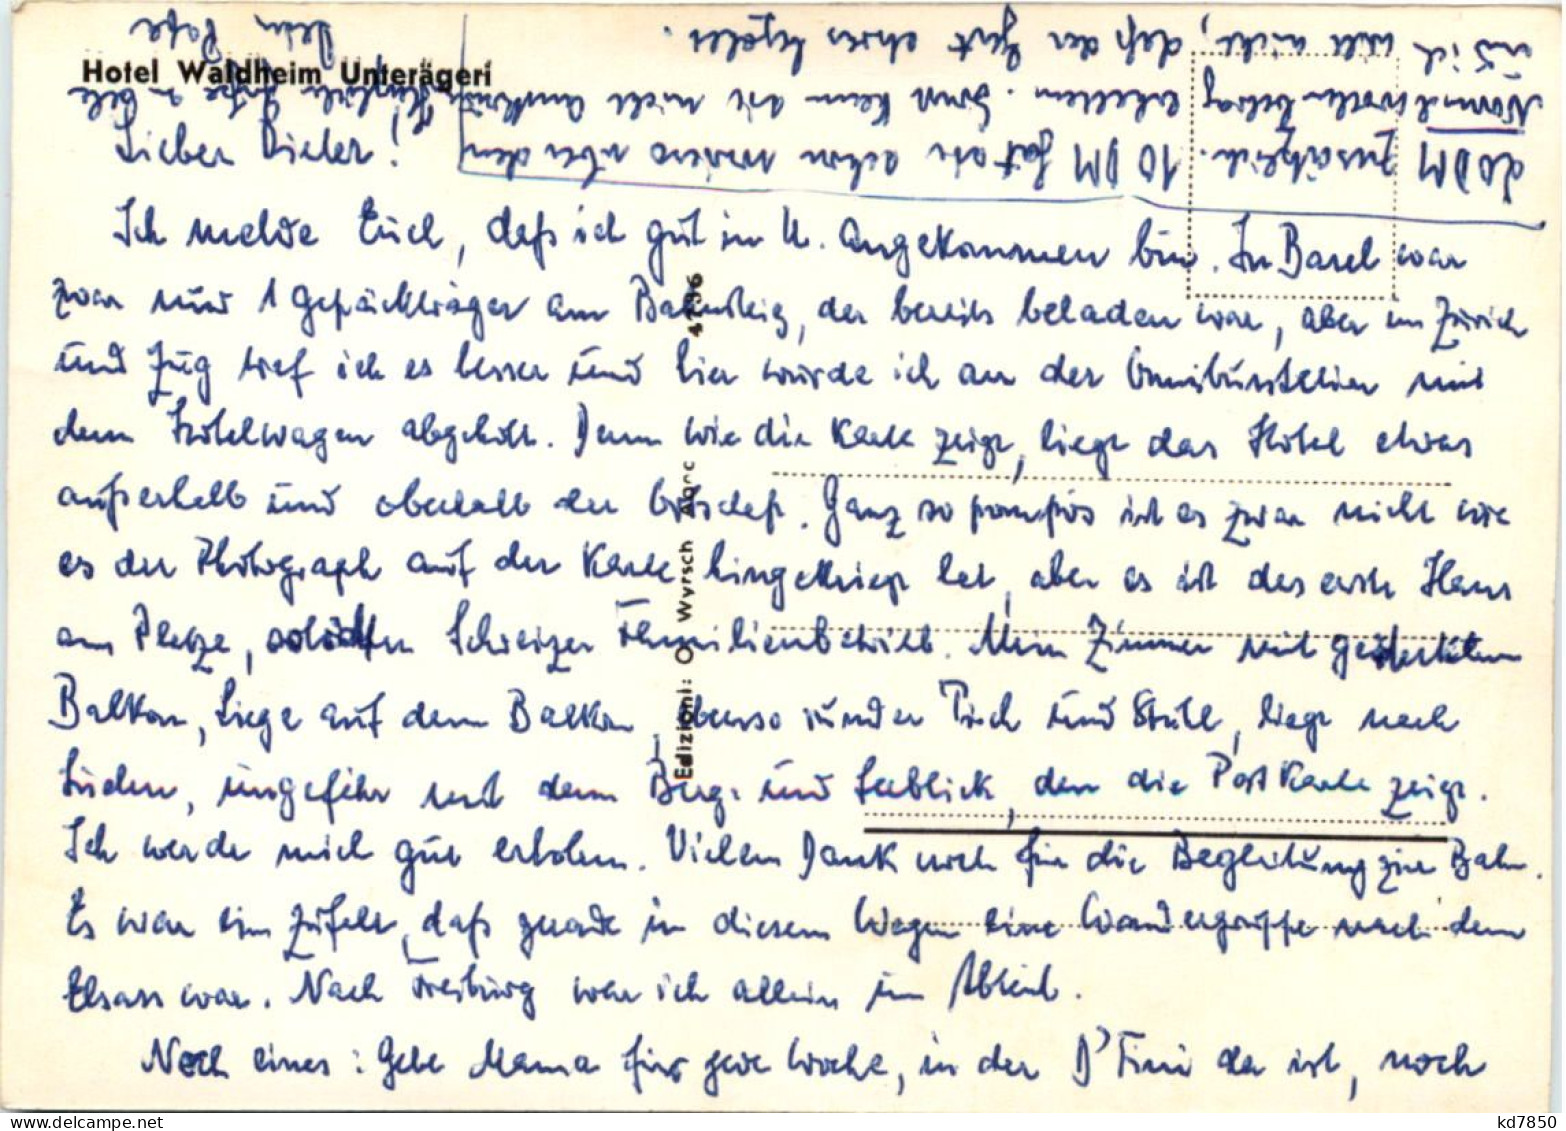 Hotel Waldheim Unterägeri
Lieber Dieter!
Ich melde Euch, daß ich gut in U. angekommen bin. In Basel war
zwar nur 1 Gepäckträger am Bahnsteig, der bereits beladen war, aber in Zürich
und Zug traf ich es besser und hier wurde ich an der Omnibusstation mit
dem Hotelwagen abgeholt. Denn wie die Karte zeigt, liegt das Hotel etwas
außerhalb und oberhalb der Ortschaft. Ganz so pompös ist es zwar nicht wie
es der Photograph auf der Karte hingekriegt hat, aber es ist das erste Haus
am Platze, Schweizer Familienbetrieb. Mein Zimmer mit
Balkon, Liege auf dem Balkon, ebenso runder Tisch und Stuhl, liegt nach
Süden, ungefähr mit dem Berg- und Seeblick, den die Postkarte zeigt.
Ich werde mich gut erholen. Vielen Dank noch für die Begleitung zur Bahn.
Es war ein Zufall, daß gerade in diesem Wagen eine Wandergruppe nach dem
Elsass war. Nach Freiburg war ich allein im Abteil.
Noch eines: Gebe Mama für jede Woche, in der D' Fini da ist, noch
20 DM zusätzlich. 10 DM hat sie schon sowieso über den
Normalwochenbetrag erhalten. Sonst kann sie nicht auskommen
und ich will nicht, daß der Gast etwas
Herzliche Grüße an alle
Dein Papa
Edizioni: O. Wyrsch
4796
kd7850